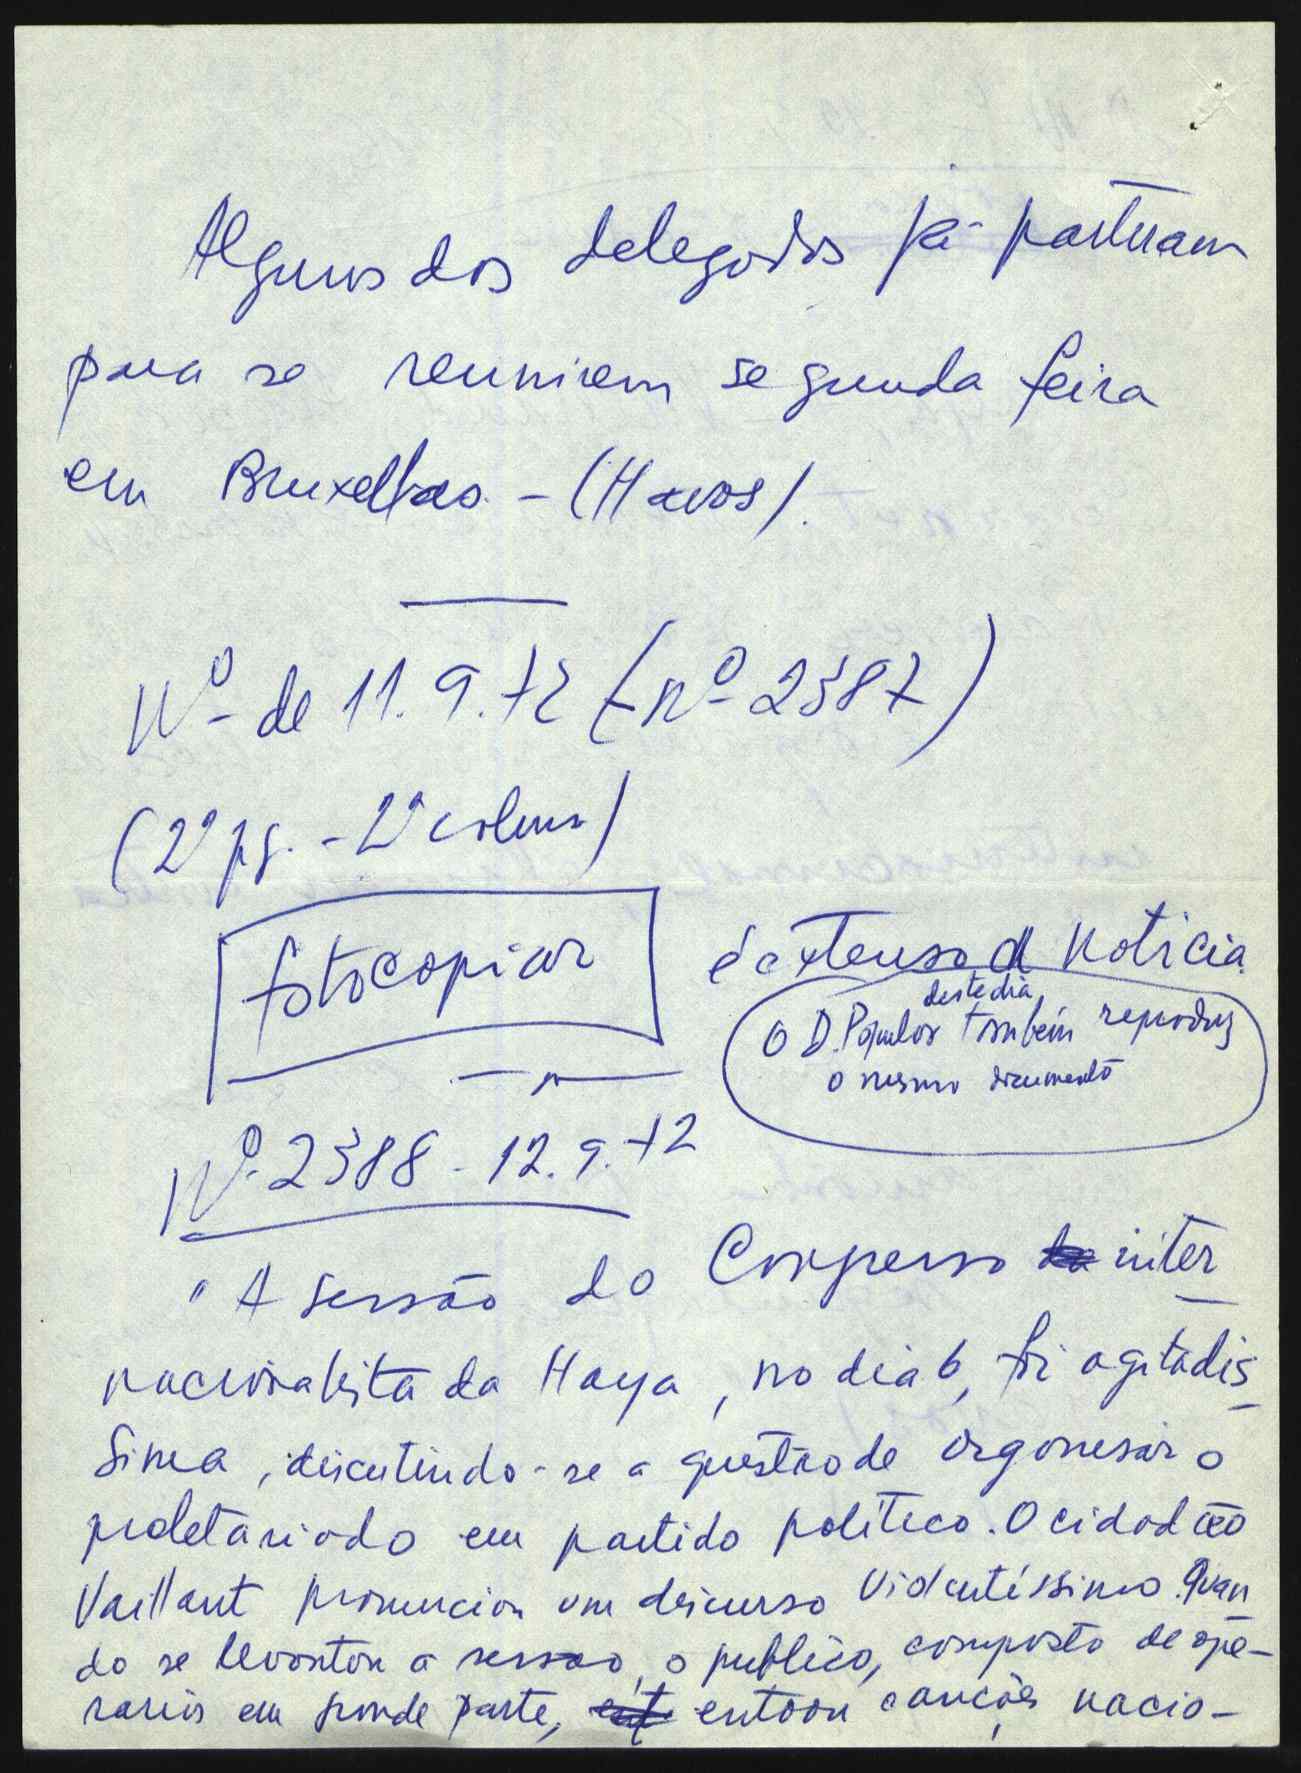 Alguns dos delegados já partiram
para se reunirem segunda feira
em Bruxellas - (Havas).
Nº de 11.9.72 (nº 2387)
(2ª pg. - 2ª coluna)
fotocopiar
é extensa a noticia
deste dia
O D. Popular também reproduz
o mesmo documento
Nº 2388 - 12.9.72
"A sessão do Congresso inter
nacionalista da Haya, no dia 6, foi agitadis
sima, discutindo-se a questão de organisar o
proletariado em partido político. O cidadão
Vaillant pronunciou um discurso violentíssimo. Quan
do se levantou a sessão, o publico, composto de ope-
rarios em grande parte, entoou canções nacio-